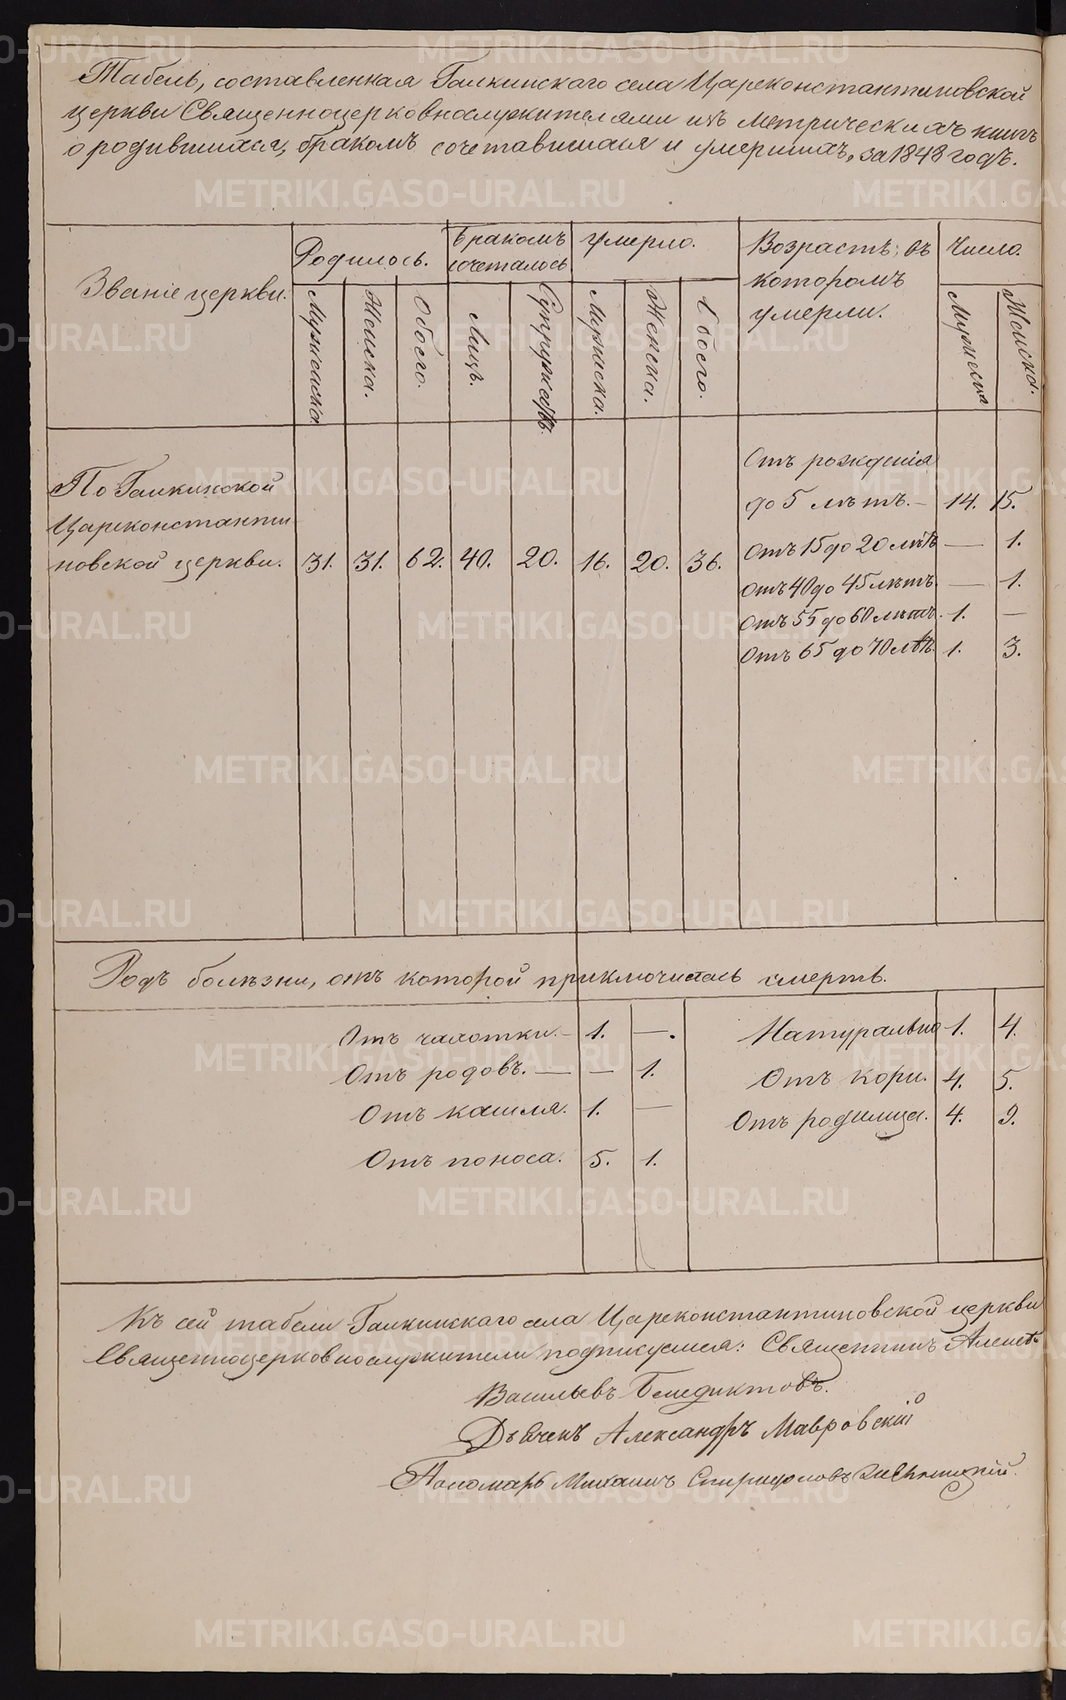 Табель, составленная Галкинскаго села Цареконстантиновской
церкви Священноцерковнослужителями изъ Метрическихъ книгъ
о родившихся, бракомъ сочетавшихся и умершихъ, за 1848 годъ.
Званіе церкви.
Родилось.
Мужеска
Женска.
Обоего.
Бракомъ
сочеталось
Лицъ.
Супружествъ.
Умерло.
Мужеска.
Женска.
Обоего.
Возрастъ, въ
которомъ
умерли.
Число.
Мужеска
Женска.
По Галкинской
Цареконстанти
новской церкви. 31. 31. 62. 40. 20. 16. 20. 36.
Отъ рожденія
до 5 лѣтъ. — 14. 15.
Отъ 15 до 20 лѣтъ — 1.
Отъ 40 до 45 лѣтъ. — 1.
Отъ 55 до 60 лѣтъ. 1. —
Отъ 65 до 70 лѣтъ. 1. 3.
Родъ болѣзни, отъ которой приключилась смерть.
Отъ чахотки. — 1. —.
Отъ родовъ. — — 1.
Отъ кашля. 1. —
Отъ поноса. 5. 1.
Натурально 1. 4.
Отъ кори. 4. 5.
Отъ родимца. 4. 9.
Къ сей табели Галкинскаго села Цареконстантиновской церкви
Священноцерковнослужители подписуемся: Священникъ Алексѣй
Васильевъ Бенедиктовъ.
Дьячекъ Александръ Мавровскій
Пономарь Михаилъ Спиридоновъ
METRIKI.GASO-URAL.RU